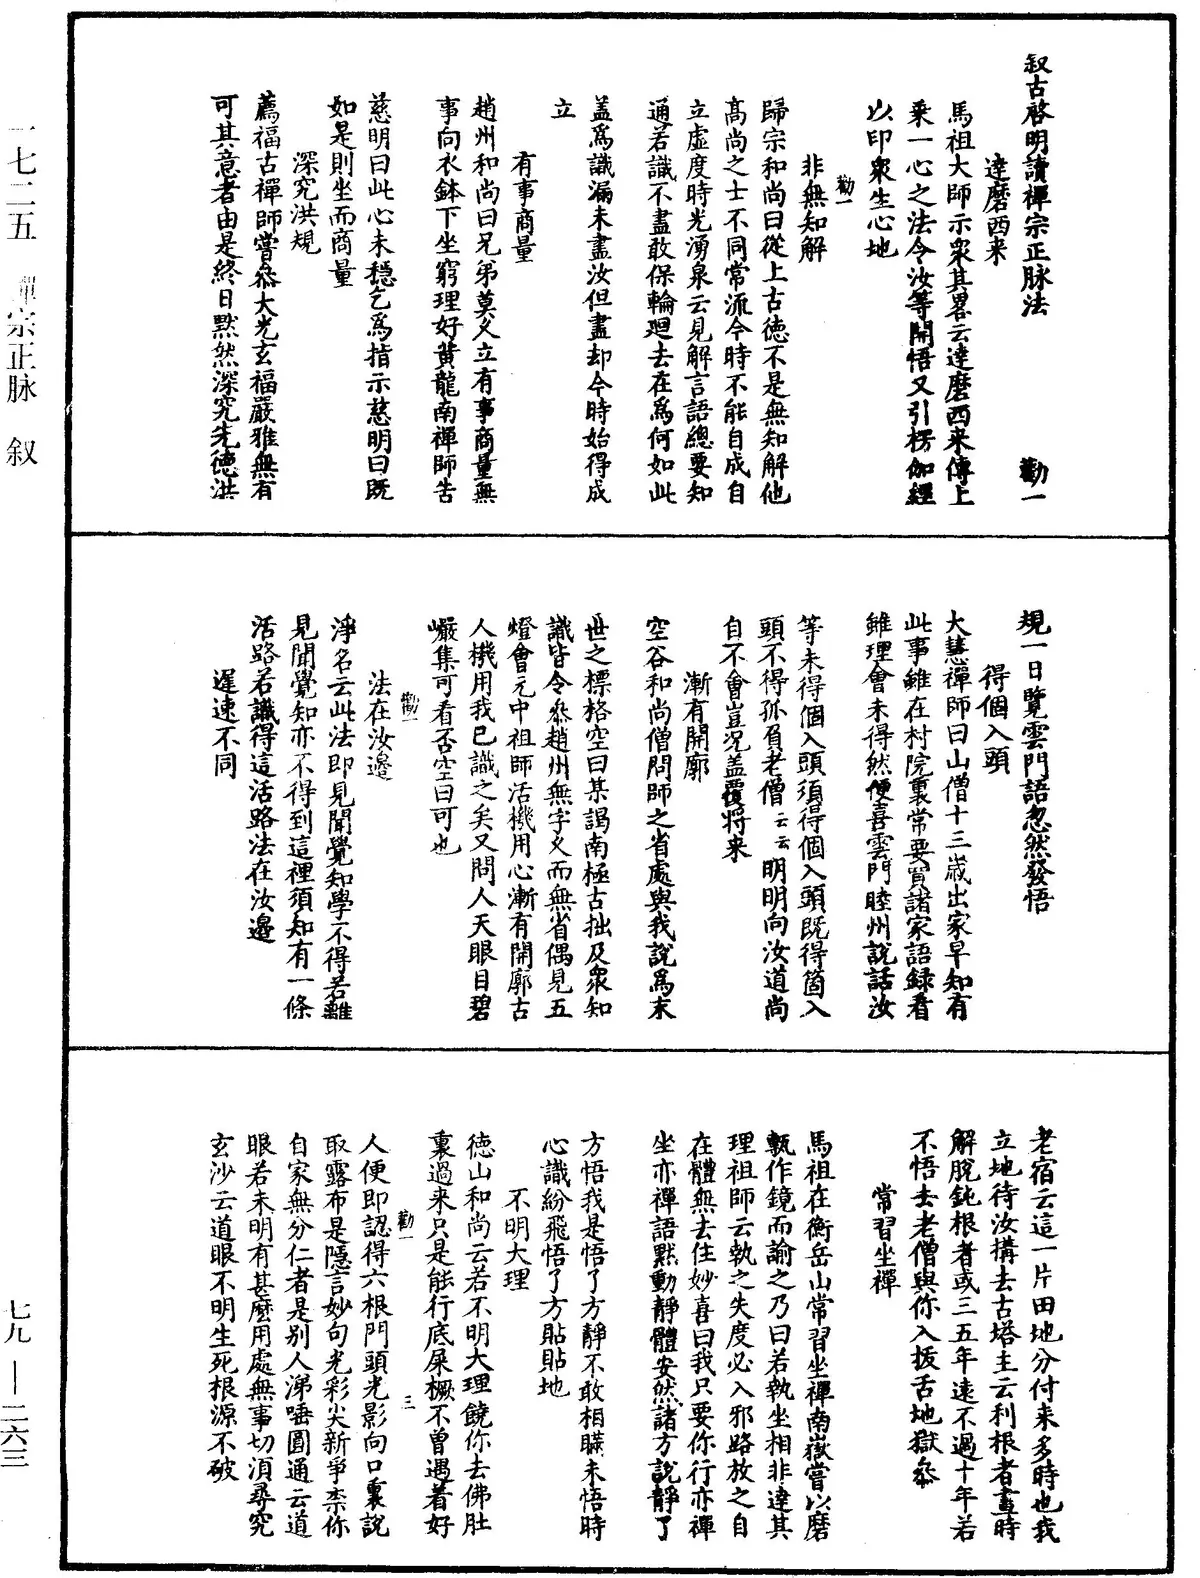 叙古啓明讀禪宗正脉法　勸一
達磨西来
馬祖大師示衆其畧云達磨西来傳上
乗一心之法令汝等開悟又引楞伽經
以印衆生心地
勸一
非無知解
歸宗和尚曰從上古德不是無知解他
髙尚之士不同常流今時不能自成自
立虛度時光湧泉云見解言語總要知
通若識不盡敢保輪廻去在爲何如此
盖爲識漏未盡汝但盡却今時始得成
立
有事商量
趙州和尚曰兄弟莫久立有事商量無
事向衣鉢下坐窮理好黄龍南禪師告
慈明曰此心未穩乞爲指示慈明曰既
如是則坐而商量
深究洪規
薦福古禪師嘗叅大光玄福嚴雅無有
可其意者由是終日黙然深究先德洪
規一日覽雲門語忽然發悟
得個入頭
大慧禪師曰山僧十三嵗出家早知有
此事雖在村院裏常要買諸家語録看
雖理會未得然便喜雲門睦州說話汝
等未得個入頭須得個入頭既得箇入
頭不得孤負老僧云云明明向汝道尚
自不會豈况盖覆将来
漸有開廓
空谷和尚僧問師之省處與我說爲末
世之標格空曰某謁南極古拙及衆知
識皆令叅趙州無字久而無省偶見五
燈會元中祖師活機用心漸有開廓古
人機用我已識之矣又問人天眼目碧
巖集可看否空曰可也
勸一
法在汝邊
淨名云此法即見聞覺知學不得若離
見聞覺知亦不得到這裡須知有一條
活路若識得這活路法在汝邊
遲速不同
老宿云這一片田地分付来多時也我
立地待汝搆去古塔主云利根者晝時
解脫鈍根者或三五年遠不過十年若
不悟去老僧與你入拔舌地獄叅
常習坐禪
馬祖在衡岳山常習坐禪南嶽嘗以磨
甎作鏡而諭之乃曰若執坐相非達其
理祖師云執之失度必入邪路放之自
在體無去住妙喜曰我只要你行亦禪
坐亦禪語黙動靜體安然諸方說靜了
方悟我是悟了方靜不敢相瞞未悟時
心識紛飛悟了方貼貼地
不明大理
德山和尚云若不明大理饒你去佛肚
裏過来只是能行底屎橛不曾遇着好
人便即認得六根門頭光影向口裏說
勸一　三
取露布是隱言妙句光彩尖新爭柰你
自家無分仁者是别人涕唾圓通云道
眼若未明有甚麼用處無事切湏尋究
玄沙云道眼不明生死根源不破
一七二五　禪宗正脉　叙
七九—二六三